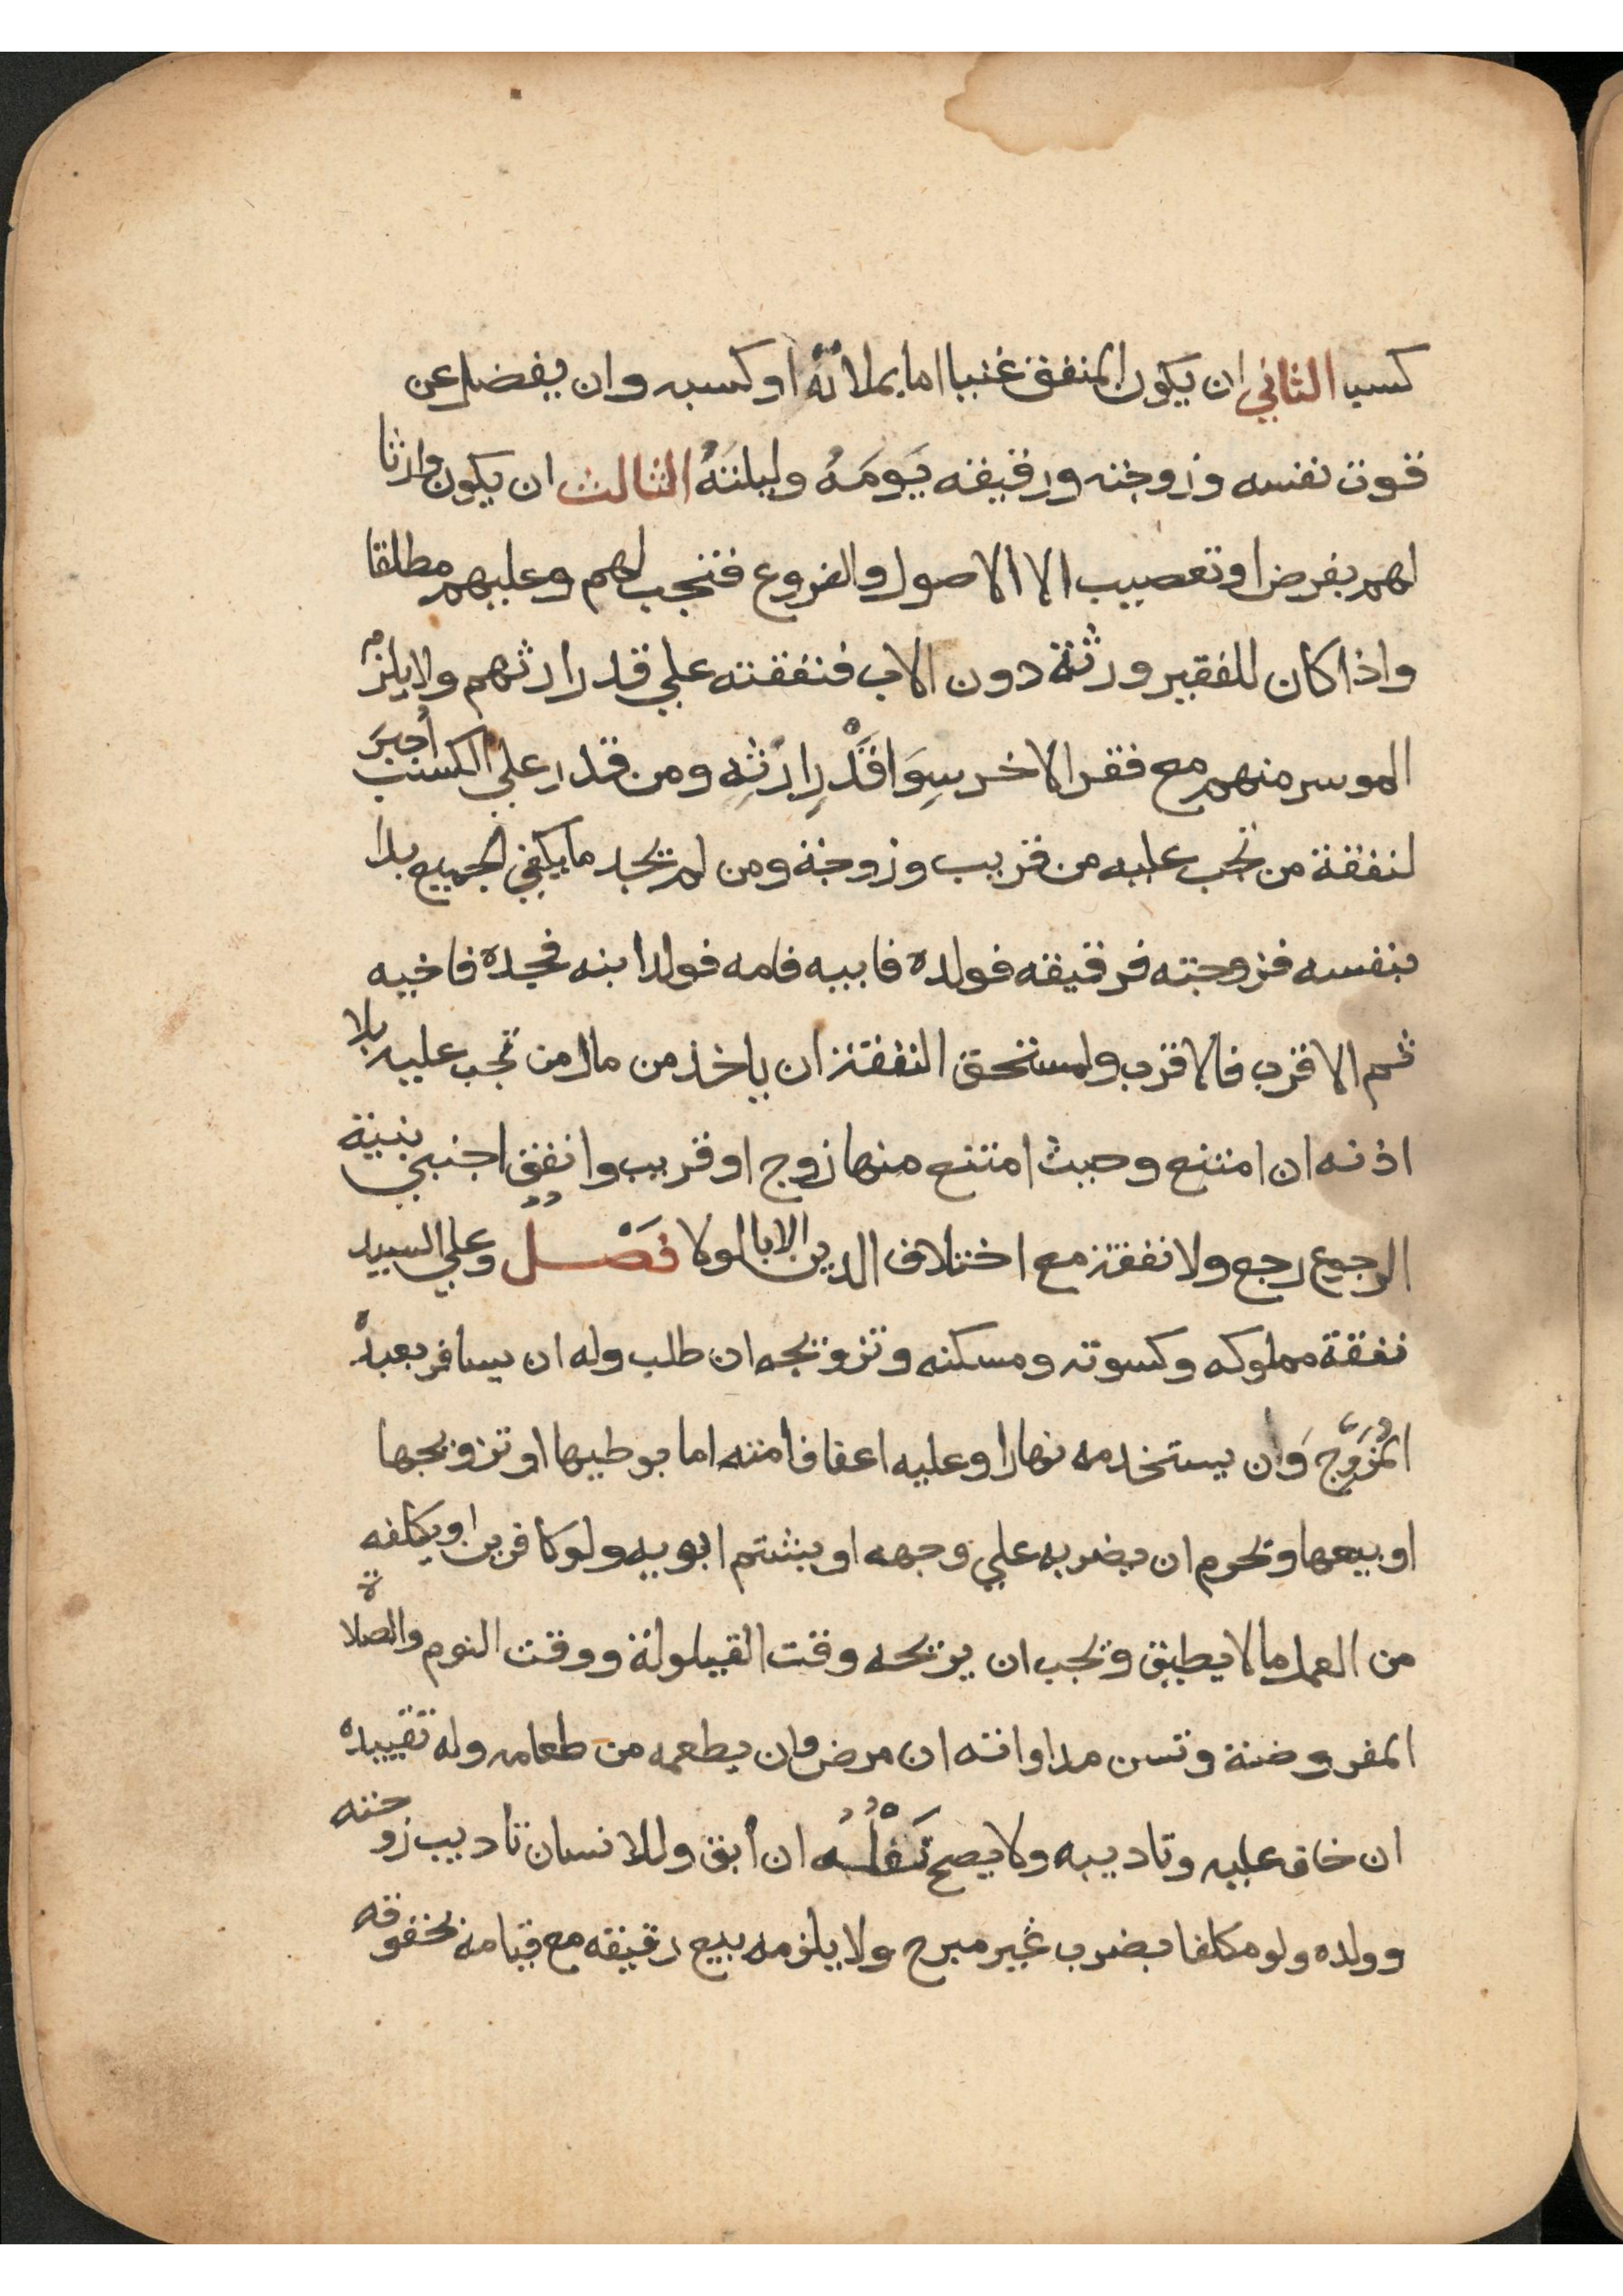 كسبا الثاني ان يكون المنفق غنيا اما بملائة او كسبه وان يفضل عن
قوت نفسه وزوجته ورقيقه يَومَهُ وليلتَهُ الثالث ان يكون وارثا
لهم بفرض او تعصيب الا الاصول والفروع فتجب لهم وعليهم مطلقا
واذا كان للفقير ورثة دون الاب فنفقته علي قدر ارثهم ولا يلزم
الموسر منهم مع فقر الاخر سِوَا قَدْرِ اِرْثِهِ ومن قدر علي الكسب أُجبِرَ
لنفقة من تجب عليه من قريب وزوجة ومن لم يجد ما يكفي الجميع بدا
بنفسه فزوجته فرقيقه فولده فابيه فامه فولد ابنه فجده فاخيه
ثم الاقرب فالاقرب ولمستحق النفقة ان ياخذ من مال من تجب عليه بلا
اذنه ان امتنع وحيث امتنع منها زوج او قريب وانفق اجنبي بنية
الرجوع رجع ولا نفقة مع اختلاف الدين الا بالولا فَصْل وعلي السيد
نفقة مملوكه وكسوته ومسكنه وتزويجه ان طلب وله ان يسافر بعبده
المُزَوَّجِ وَان يستخدمه نهارا وعليه اعفاف امته اما بوطيها او تزويجها
او بيعها وتحرم ان يضربه علي وجهه او يشتم ابويه ولو كافرين او يكلفه
من العمل ما لا يطيق ويجب ان يريحه وقت القيلولة ووقت النوم والصلاة
المفروضة وتسن مداواته ان مرض وان يطعمه من طعامه وله تقييده
ان خاف عليه وتاديبه ولا يصح نَفْلُهُ ان أبق وللانسان تاديب زوجته
وولده ولو مكلفا بضرب غير مبرح ولا يلزمه بيع رقيقه مع قيامه بحقوقه